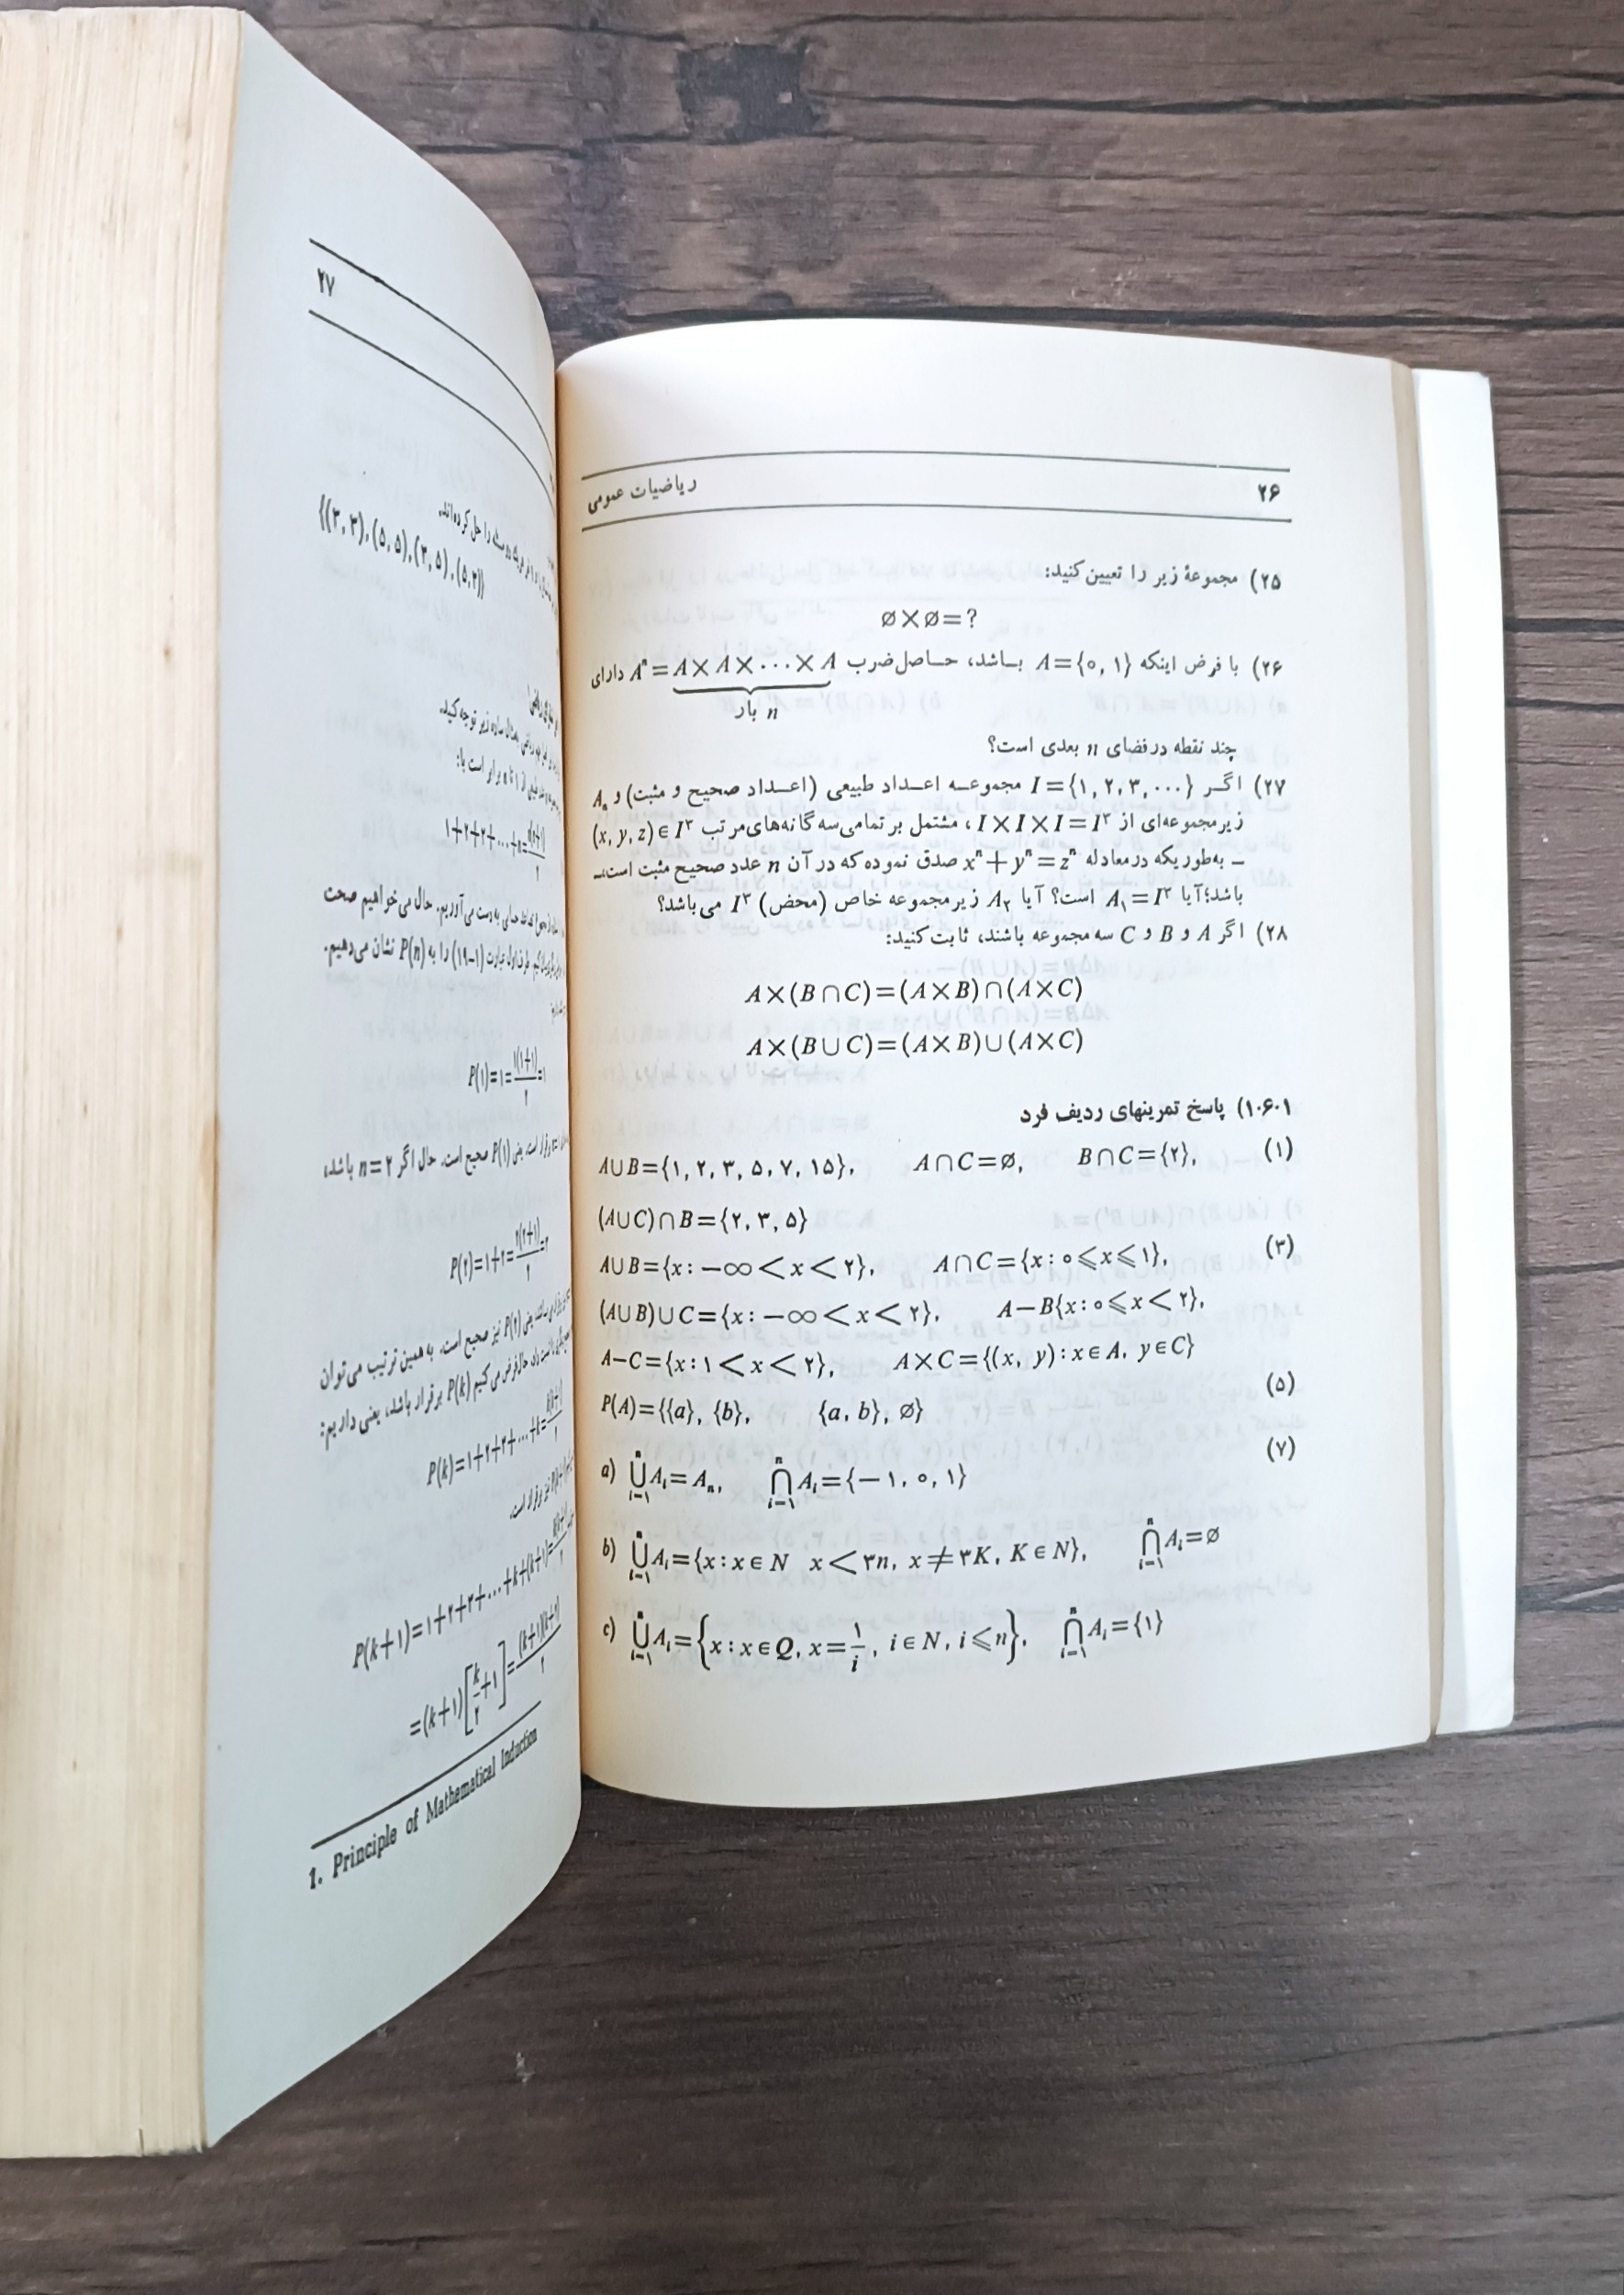 ۲۶
ریاضیات عمومی
۲۵) مجموعهٔ زیر را تعیین کنید:
∅×∅=?
۲۶) با فرض اینکه A={۰, ۱} باشد، حاصل‌ضرب Aⁿ=A×A×...×A دارای
n بار
چند نقطه در فضای n بعدی است؟
۲۷) اگر I={۱, ۲, ۳, ...} مجموعه اعداد طبیعی (اعداد صحیح و مثبت) و Aₙ
زیرمجموعه‌ای از I×I×I=I³، مشتمل بر تمامی سه گانه‌های مرتب (x, y, z)∈I³
– به‌طوریکه در معادله xⁿ+yⁿ=zⁿ صدق نموده که در آن n عدد صحیح مثبت است–
باشد؛ آیا A₁=I³ است؟ آیا A₂ زیرمجموعه خاص (محض) I³ می‌باشد؟
۲۸) اگر A و B و C سه مجموعه باشند، ثابت کنید:
A×(B∩C)=(A×B)∩(A×C)
A×(B∪C)=(A×B)∪(A×C)
۱۰۶۰۱) پاسخ تمرینهای ردیف فرد
(۱) A∪B={۱, ۲, ۳, ۵, ۷, ۱۵}, A∩C=∅, B∩C={۲},
(A∪C)∩B={۲, ۳, ۵}
(۳) A∪B={x: −∞<x<۲}, A∩C={x: ۰⩽x⩽۱},
(A∪B)∪C={x: −∞<x<۲}, A−B{x: ۰⩽x<۲},
A−C={x: ۱<x<۲}, A×C={(x, y): x∈A, y∈C}
(۵) P(A)={{a}, {b}, {a, b}, ∅}
(۷)
a) ⋃ⁿᵢ₋₁ Aᵢ=Aₙ, ⋂ⁿᵢ₋₁ Aᵢ={−۱, ۰, ۱}
b) ⋃ⁿᵢ₋₁ Aᵢ={x: x∈N x<۳n, x≠۳K, K∈N}, ⋂ⁿᵢ₋₁ Aᵢ=∅
c) ⋃ⁿᵢ₋₁ Aᵢ={x: x∈Q, x=۱/i, i∈N, i⩽n}, ⋂ⁿᵢ₋₁ Aᵢ={۱}
۲۷
را حل کرده‌اند.
{(۳, ۳), (۵, ۵), (۳, ۵), (۵, ۳)}
ساده زیر توجه کنید.
برابر است با:
به دست می‌آوریم. حال می‌خواهیم صحت
عبارت (۱−۱۹) را به P(n) نشان می‌دهیم.
P(۱)=۱=۱(۱+۱)/۲=۱
P(۱) صحیح است. حال اگر n=۲ باشد،
P(۲)=۱+۲=۲(۲+۱)/۲=۳
P(۲) نیز صحیح است. به همین ترتیب می‌توان
فرض می‌کنیم P(k) برقرار باشد، یعنی داریم:
P(k)=۱+۲+۳+...+k=k(k+۱)/۲
نیز برقرار است.
P(k+۱)=۱+۲+۳+...+k+(k+۱)=
=(k+۱)[k/۲+۱]=(k+۱)(k+۲)/۲
1. Principle of Mathematical Induction